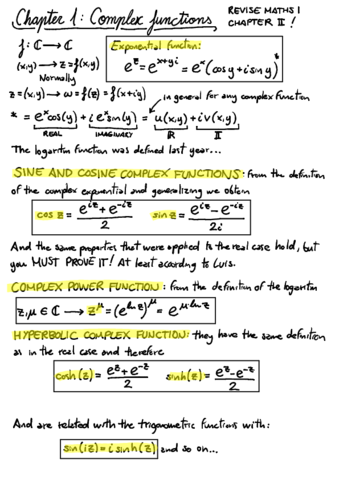 Chapter 1: Complex functions
REVISE MATHS I
CHAPTER II!
f: ℂ → ℂ
(x,y) → z = f(x,y)
Normally
Exponential function:
e^z = e^{x+yi} = e^x (cos y + i sin y) *
z = (x,y) → ω = f(z) = f(x+iy)
in general for any complex function
* = e^x cos(y) + i e^x sin(y) = u(x,y) + i v(x,y)
REAL IMAGINARY ℝ 𝕀
The logaritm function was defined last year...
SINE AND COSINE COMPLEX FUNCTIONS: from the definition
of the complex exponential and generalizing we obtain
cos z = (e^{iz} + e^{-iz})/2 sin z = (e^{iz} - e^{-iz})/2i
And the same properties that were applied to the real case hold, but
you MUST PROVE IT! At least according to Luis.
COMPLEX POWER FUNCTION: from the definition of the logaritm
z, μ ∈ ℂ → z^μ = (e^{ln z})^μ = e^{μ·ln z}
HYPERBOLIC COMPLEX FUNCTION: they have the same definition
as in the real case and therefore
cosh(z) = (e^z + e^{-z})/2 sinh(z) = (e^z - e^{-z})/2
And are related with the trigonometric functions with:
sin(iz) = i sinh(z) and so on...